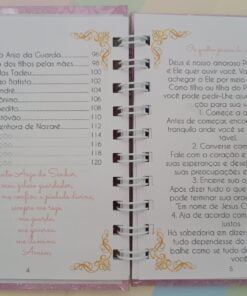 o Anjo da Guarda 96
o dos filhos pelas mães 98
das Tadeu 100
o Batista 102
ndré 104
ônimo 106
nedito 108
enhora de Nazaré
110
112
114
120
Anjo do Senhor,
meu zeloso guardador,
me confiou a piedade divina,
sempre me rege,
me guarda,
me governa,
me ilumina.
Amém
4
Deus é nosso amoroso P
e Ele quer ouvir você. Va
Como filho ou filha do P
você pode pedir-Lhe aju
para su
1. Começe a
Antes de começar, encon
tranquila onde você se
tável.
2. Converse
Fale com o coração e
suas esperanças e dese
suas preocupações e
3. Encerre sua o
Após dizer tudo o que
pode dize
"Em nome de Jesus C
4. Aja de acordo com
justos
Há sabedoria em dizer
tudo dependesse do
balhe como se tudo d
você.
5